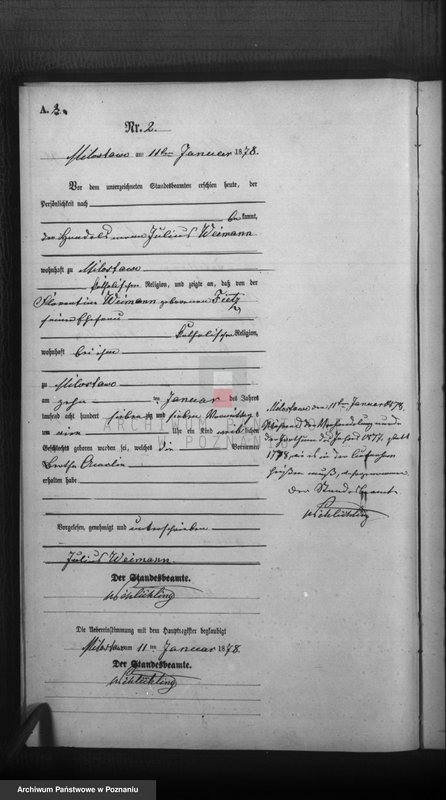 A. 2.
Nr. 2.
Miloslaw am 11ten Januar 1878.
Vor dem unterzeichneten Standesbeamten erschien heute, der
Persönlichkeit nach
be kannt,
der Handelsmann Julius Weimann
wohnhaft zu Miloslaw
katholischen Religion, und zeigte an, daß von der
Florentine Weimann geborenen Fietz
seiner Ehefrau
katholischer Religion,
wohnhaft bei ihm
zu Miloslaw
am zehn ten Januar des Jahres
tausend acht hundert sieben zig und sieben Vormittags
um vier Uhr ein Kind weiblichen
Geschlechts geboren worden sei, welches die Vornamen
Bertha
erhalten habe
Vorgelesen, genehmigt und unterschrieben
Julius Weimann.
Der Standesbeamte.
Schlichting
Die Uebereinstimmung mit dem Hauptregister beglaubigt
Miloslaw am 11 ten Januar 1878.
Der Standesbeamte.
Schlichting
Miloslaw den 11ten Januar 1878.
Während der Verhandlung wurde
der Irrthum des Jahres 1877, statt
1878, wie es in der Aufnahme
heißen muß, wahrgenommen.
Der Standesbeamte
Schlichting
ARCHIWUM PAŃSTWOWE
W POZNANIU
Archiwum Państwowe w Poznaniu